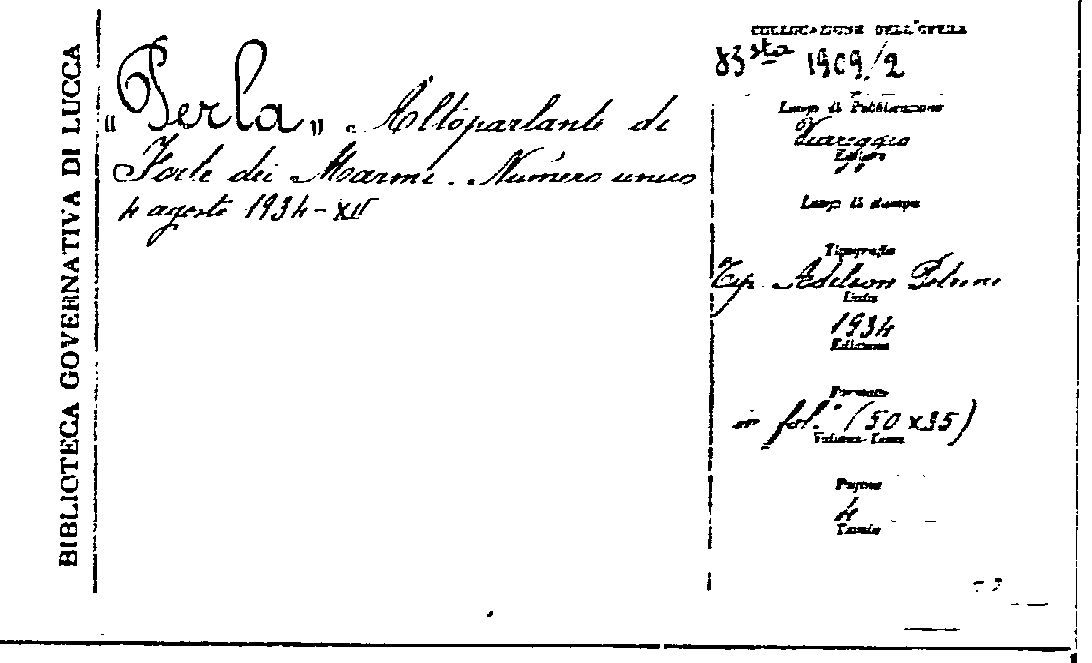 BIBLIOTECA GOVERNATIVA DI LUCCA
„Perla„. Altoparlante di
Forte dei Marmi. Numero unico
4 agosto 1934-XII
COLLOCAZIONE DELL'OPERA
B3 sta 1909/2
Luogo di Pubblicazione
Viareggio
Editore
Luogo di stampa
Tipografia
Tip. Adelson Petroni
Data
1934
Edizione
Formato
in fol.° (50x35)
Volume
Pagine
4
Tavole